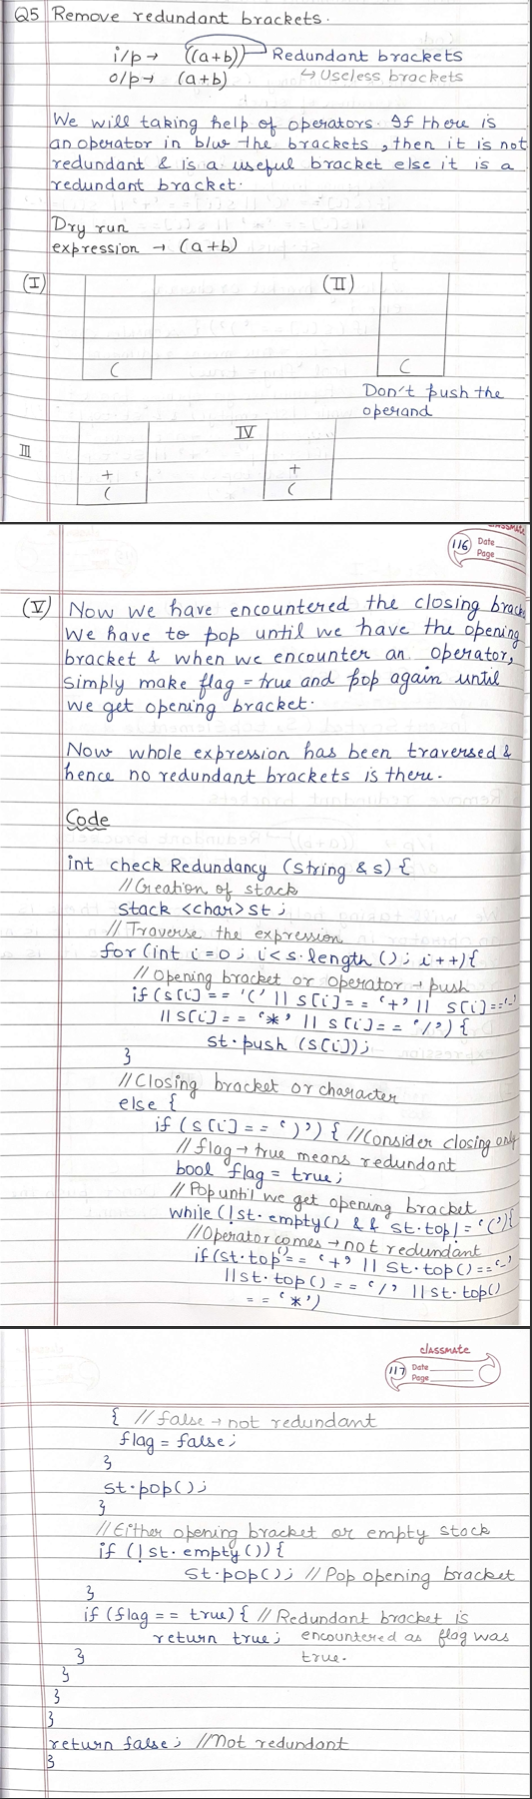 Q5 Remove redundant brackets.
i/p → ((a+b)) Redundant brackets
o/p → (a+b) ↳ Useless brackets
We will taking help of operators. If there is
an operator in b/w the brackets, then it is not
redundant & is a useful bracket else it is a
redundant bracket.
Dry run
expression → (a+b)
(I) (II)
( (
Don't push the
operand
III IV
+ +
( (
classmate
116 Date
Page
(V) Now we have encountered the closing brack
We have to pop until we have the opening
bracket & when we encounter an operator,
simply make flag = true and pop again until
we get opening bracket.
Now whole expression has been traversed &
hence no redundant brackets is there.
Code
int check Redundancy (string &s) {
//Creation of stack
stack <char> st ;
// Traverse the expression
for (int i=0; i<s.length (); i++){
// Opening bracket or operator → push
if (s[i] == '(' || s[i] == '+' || s[i] == '-'
|| s[i] == '*' || s[i] == '/') {
st.push (s[i]);
}
//Closing bracket or character
else {
if (s[i] == ')') { //Consider closing only
// flag → true means redundant
bool flag = true;
// Pop until we get opening bracket
while (!st.empty() && st.top != '('){
//Operator comes → not redundant
if (st.top() == '+' || st.top() == '-'
|| st.top() == '/' || st.top()
== '*')
classmate
117 Date
Page
{ // false → not redundant
flag = false;
}
st.pop();
}
//Either opening bracket or empty stack
if (!st.empty()){
st.pop(); // Pop opening bracket
}
if (flag == true) { // Redundant bracket is
return true; encountered as flag was
} true.
}
}
}
return false; //Not redundant
}